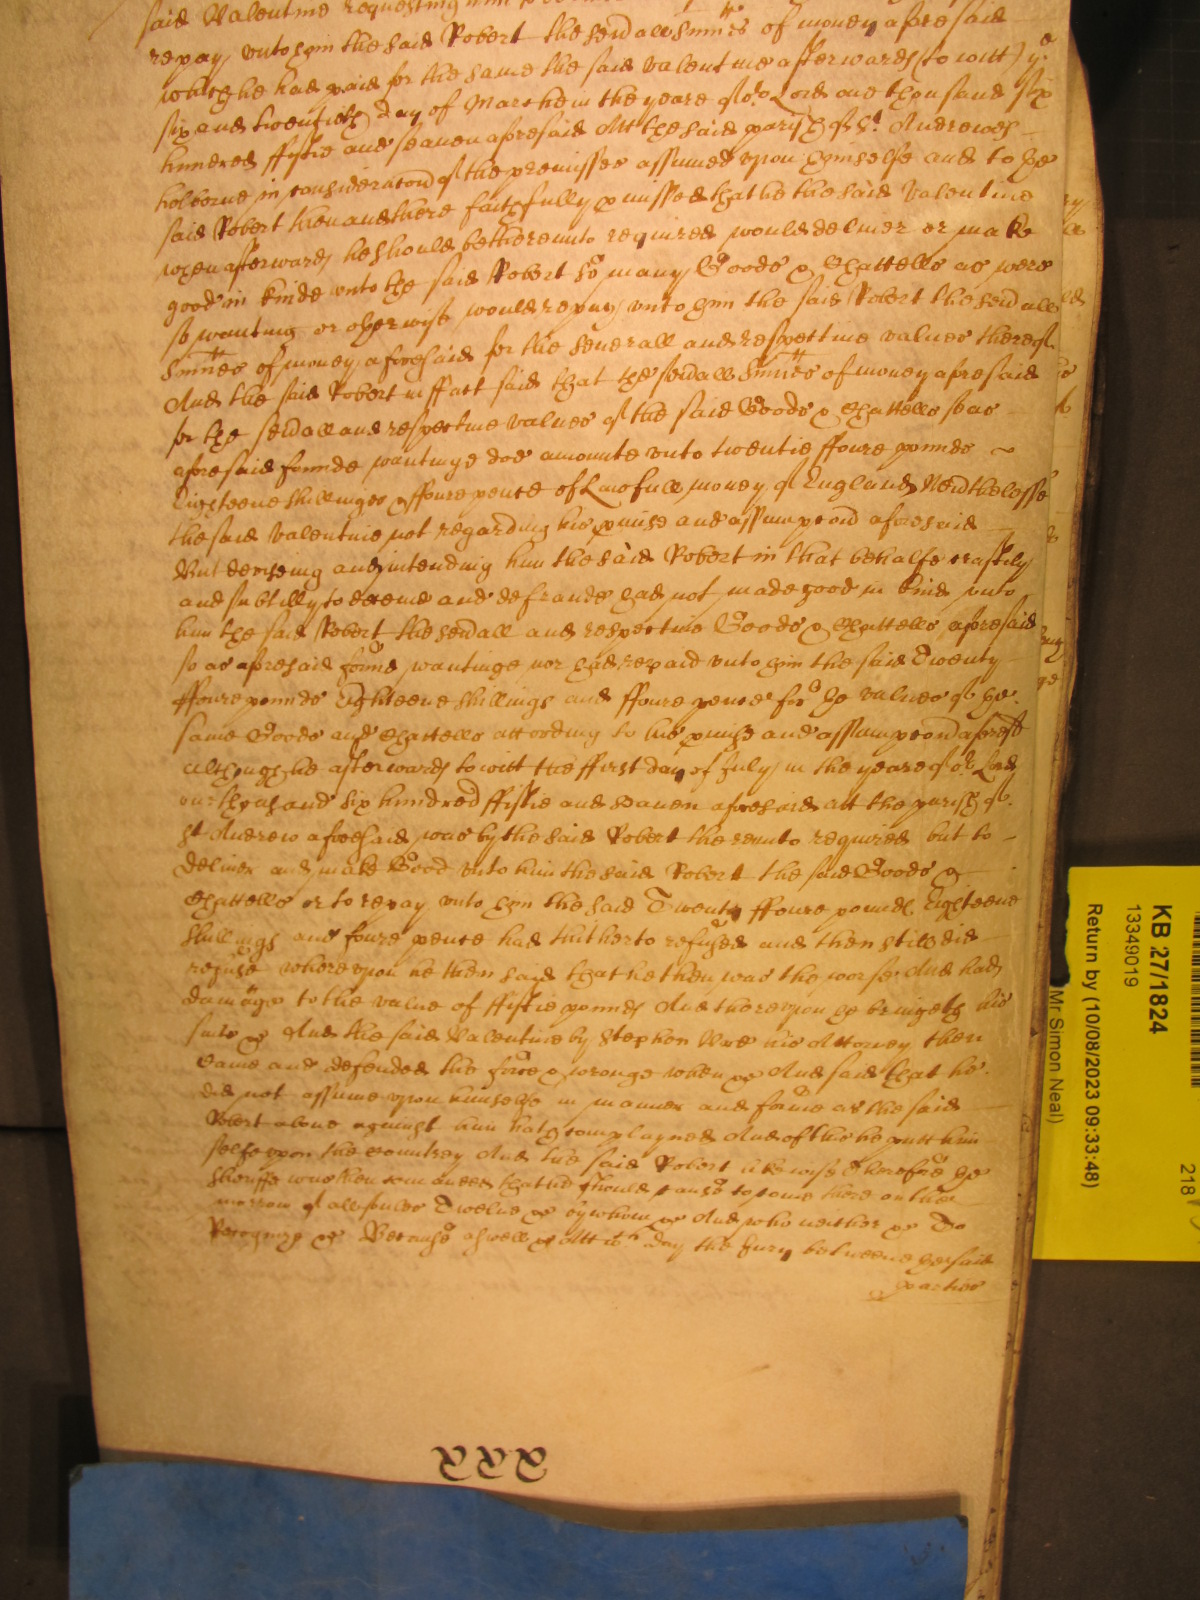 said Valentine requesting him
repay vnto him the said Robert the sevall Summes of money aforesaid
which he had paid for the same the said Valentine afterwards (to witt) ye
six and twentieth day of March in the yeare of or Lord one thousand six
hundred ffiftie and seaven aforesaid Att the said parish of St Andrewes
holborne in consideracon of the premisses assumed vpon himselfe and to the
said Robert then and there faithfully pmissed that he the said Valentine
when afterwards he should be thereunto required would deliver or make
good in kinde vnto the said Robert so many Goods & Chattells as were
so wanting or otherwise would repay vnto him the said Robert the sevall
Summes of money aforesaid for the severall and respective values thereof
And the said Robert in ffact said that the sevall Summes of money aforesaid
for the sevall and respective values of the said Goods & Chattells so as
aforesaid founde wantinge doe amounte vnto twentie ffoure pounds
Eighteene shillinges & ffoure pence of Lawfull money of England Neverthelesse
the said Valentine not regarding his pmise and assumpcon aforesaid
But devising and intending him the said Robert in that behalfe craftily
and subtilly to deceive and defraude had not made good in kind vnto
him the said Robert the sevall and respective Goods & Chattells aforesaid
so as aforesaid found wantinge nor had repaid vnto him the said Twenty
ffoure pounds Eighteene shillings and ffoure pence for the values of the
same Goods and Chattells according to his pmise and assumpcon aforesd
Although he afterwards to witt the ffirst day of July in the yeare of or Lord
one thousand six hundred ffiftie and seaven aforesaid att the parish of
St Andrew aforesaid was by the said Robert thereunto required but to
deliver and make Good vnto him the said Robert the said Goods &
Chattells or to repay vnto him the said Twenty ffoure pounds Eighteene
shillings and foure pence had hitherto refused and then still did
refuse wherevpon he then said that he then was the worse And had
damage to the value of ffiftie pounds And therevpon he bringeth his
suite &c And the said Valentine by Stephen his Attorney then
Came and defended the force & wronge when &c And said that he
did not assume vpon himselfe in manner and forme as the said
Robert above against him hath complayned And of this he putt him
selfe vpon the Countrey And the said Robert likewise Therefore the
Sheriffe was then comanded that he should cause to come there on the
morrow of all soules Twelve &c by whom &c And who neither &c To
Recognize &c Because aswell &c Att wch day the Jury betweene the said
parties
KB 27/1824
13349019
Return by (10/08/2023 09:33:48)
Mr Simon Neal)
218